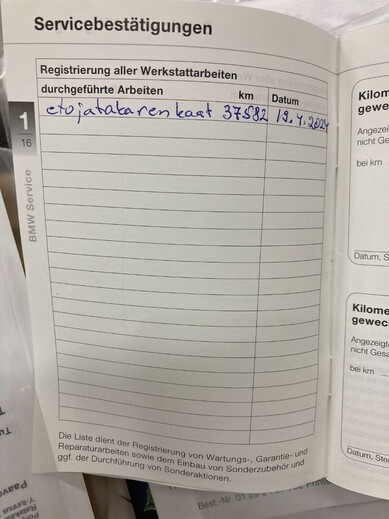 Servicebestätigungen
Registrierung aller Werkstattarbeiten
durchgeführte Arbeiten km Datum
etujatakarenkaat 37582 19.4.2024
1
16
BMW Service
Die Liste dient der Registrierung von Wartungs-, Garantie- und
Reparaturarbeiten sowie dem Einbau von Sonderzubehör und
ggf. der Durchführung von Sonderaktionen.
Kilom
gewe
Angezei
nicht Ge
bei km
Datum, S
Kilome
gewec
Angezeigt
nicht Gesa
bei km
Datum, Ste
Best.-Nr. 01
Paavo